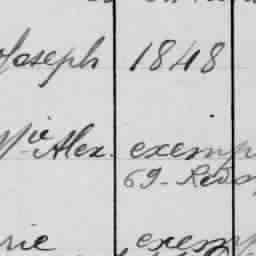 Joseph 1848
Alex. exemp
69-
rie exemp